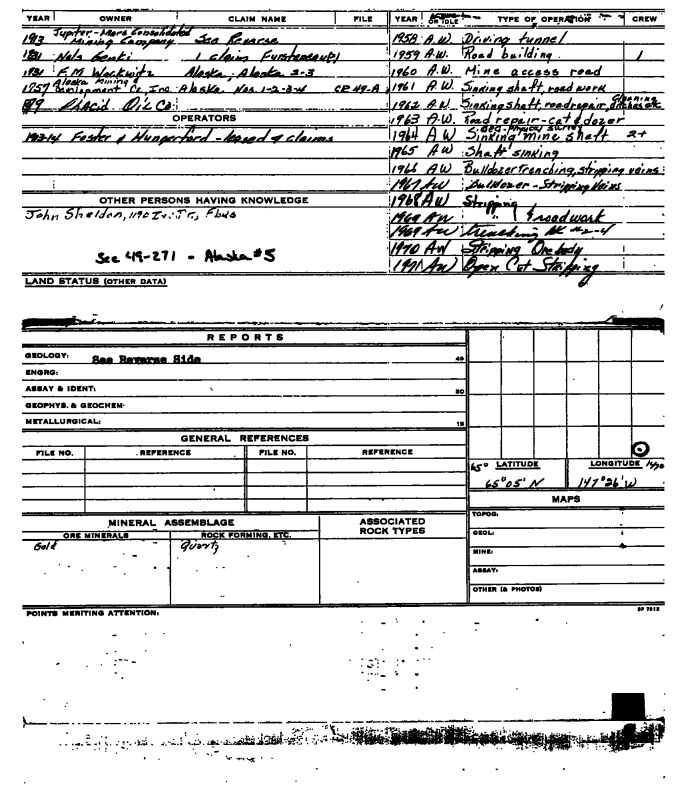 YEAR OWNER CLAIM NAME FILE
1913 Jupiter-Mars Consolidated Mining Company See Reverse
1931 Nels 1 claim
1931 F.M. Alaska, Alaska 2-3
1957 Alaska Mining & Development Co., Inc. Alaska Nos. 1-2-3-4 CP 49-A
Placid Oil Co.
OPERATORS
Foster & Hungerford - leased 9 claims
OTHER PERSONS HAVING KNOWLEDGE
John Sheldon, Fbks
See 49-271 - Alaska #5
LAND STATUS (OTHER DATA)
YEAR OR IDLE TYPE OF OPERATION CREW
1958 A.W. Driving tunnel
1959 A.W. Road building 1
1960 A.W. Mine access road
1961 A.W. Sinking shaft, road work
1962 A.W. Sinking shaft, road repair, Cleaning ditches etc
1963 A.W. Road repair - cat & dozer
1964 A W Sinking mine shaft 2+
1965 AW Shaft sinking
1966 AW Bulldozer trenching, stripping veins
1967 AW Bulldozer - Stripping Veins
1968 AW Stripping
1969 AW " & road work
1969 AW trenching AK #2-4
1970 AW Stripping Orebody
1971 AW Open Cut Stripping
REPORTS
GEOLOGY: See Reverse Side 45
ENGRG:
ASSAY & IDENT: 30
GEOPHYS. & GEOCHEM.
METALLURGICAL: 15
GENERAL REFERENCES
FILE NO. REFERENCE FILE NO. REFERENCE
65° LATITUDE LONGITUDE
65°05' N 147°26' W
MINERAL ASSEMBLAGE
ORE MINERALS ROCK FORMING, ETC.
Gold Quartz
ASSOCIATED ROCK TYPES
MAPS
TOPOG:
GEOL:
MINE:
ASSAY:
OTHER (& PHOTOS)
POINTS MERITING ATTENTION: